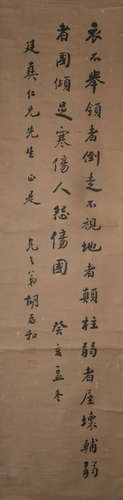 衣不舉領者倒走不視地者顛柱弱者屋壞輔弱
者國傾足寒傷人怨傷國 癸亥孟冬
廷真仁兄先生 正是
弟胡